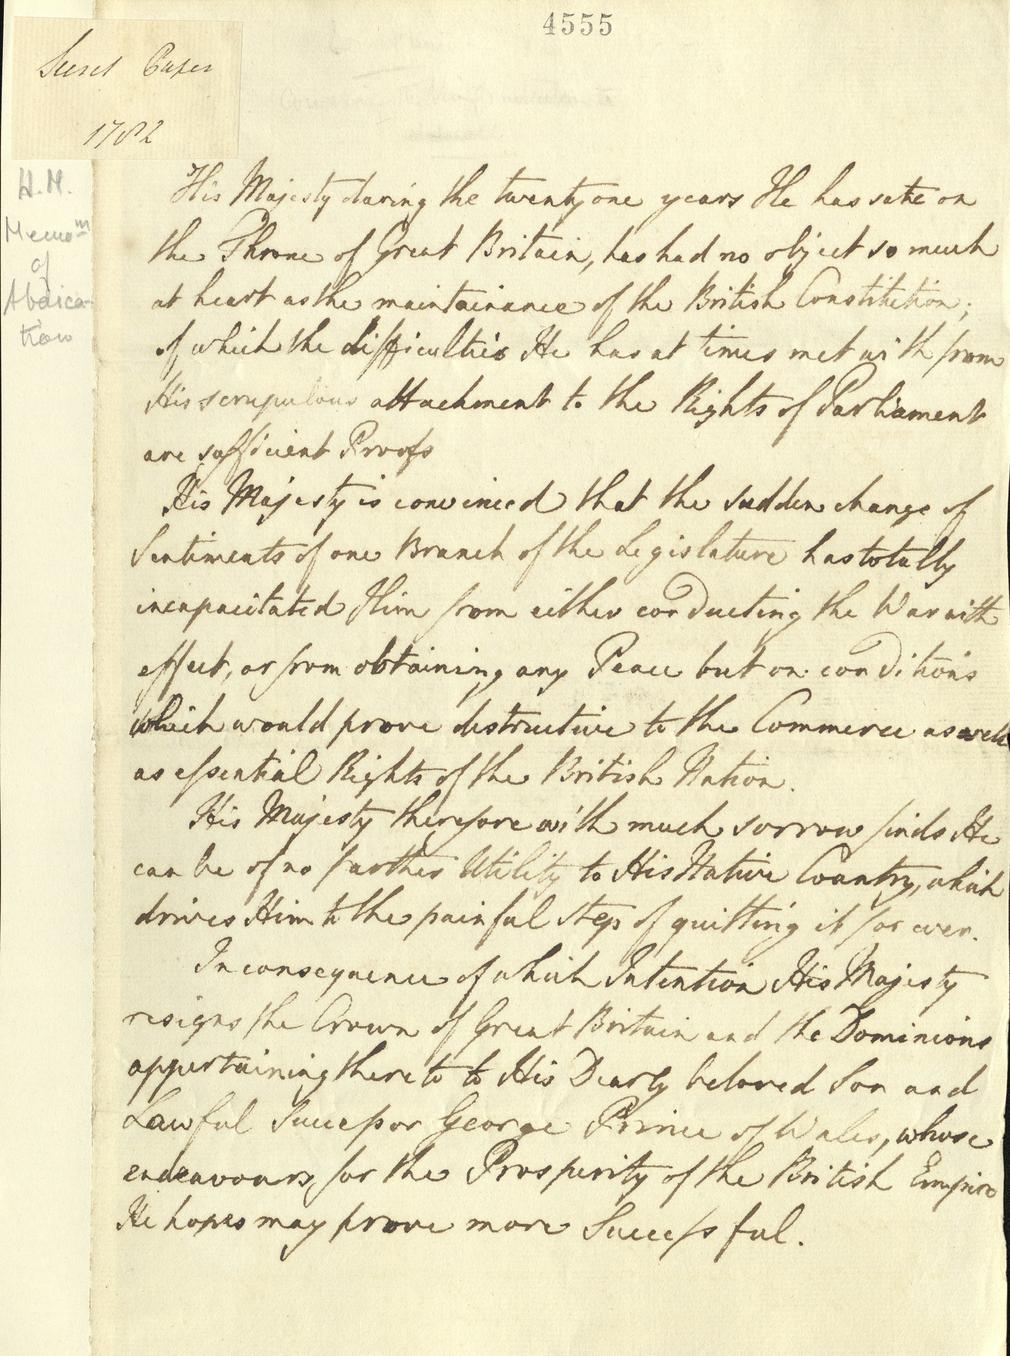 4555
Secret Paper
1782
H.M.
Memo^m
of
Abdica-
tion
His Majesty during the twenty one years He has sate on
the Throne of Great Britain, has had no object so much
at heart as the maintainance of the British Constitution;
of which the difficulties He has at times met with from
His scrupulous attachment to the Rights of Parliament
are sufficient Proofs
His Majesty is convinced that the sudden change of
Sentiments of one Branch of the Legislature has totally
incapacitated Him from either conducting the War with
effect, or from obtaining any Peace but on conditions
which would prove destructive to the Commerce as well
as essential Rights of the British Nation.
His Majesty therefore with much sorrow finds He
can be of no further Utility to His Native Country, which
drives Him to the painful step of quitting it for ever.
In consequence of which Intention His Majesty
resigns the Crown of Great Britain and the Dominions
appertaining thereto to His Dearly beloved Son and
Lawful Successor George Prince of Wales, whose
endeavours for the Prosperity of the British Empire
He hopes may prove more Successful.